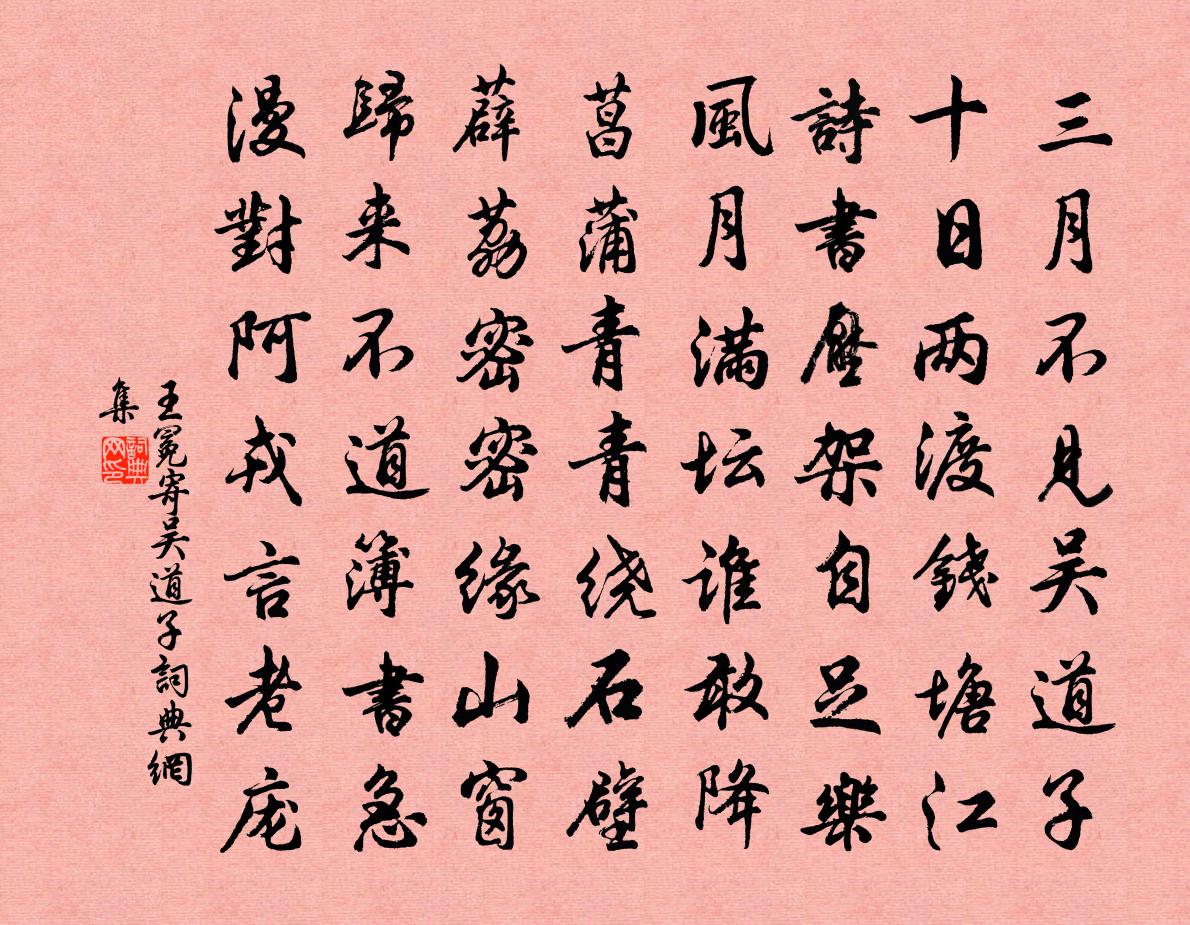 三月不見吴道子
十日两渡錢塘江
詩書壓架自足樂
風月满坛谁敢降
菖蒲青青绕石壁
薜荔密密缘山窗
歸来不道簿書急
漫對阿戎言老庞
王冕寄吴道子詞典網
集
詞典
网印